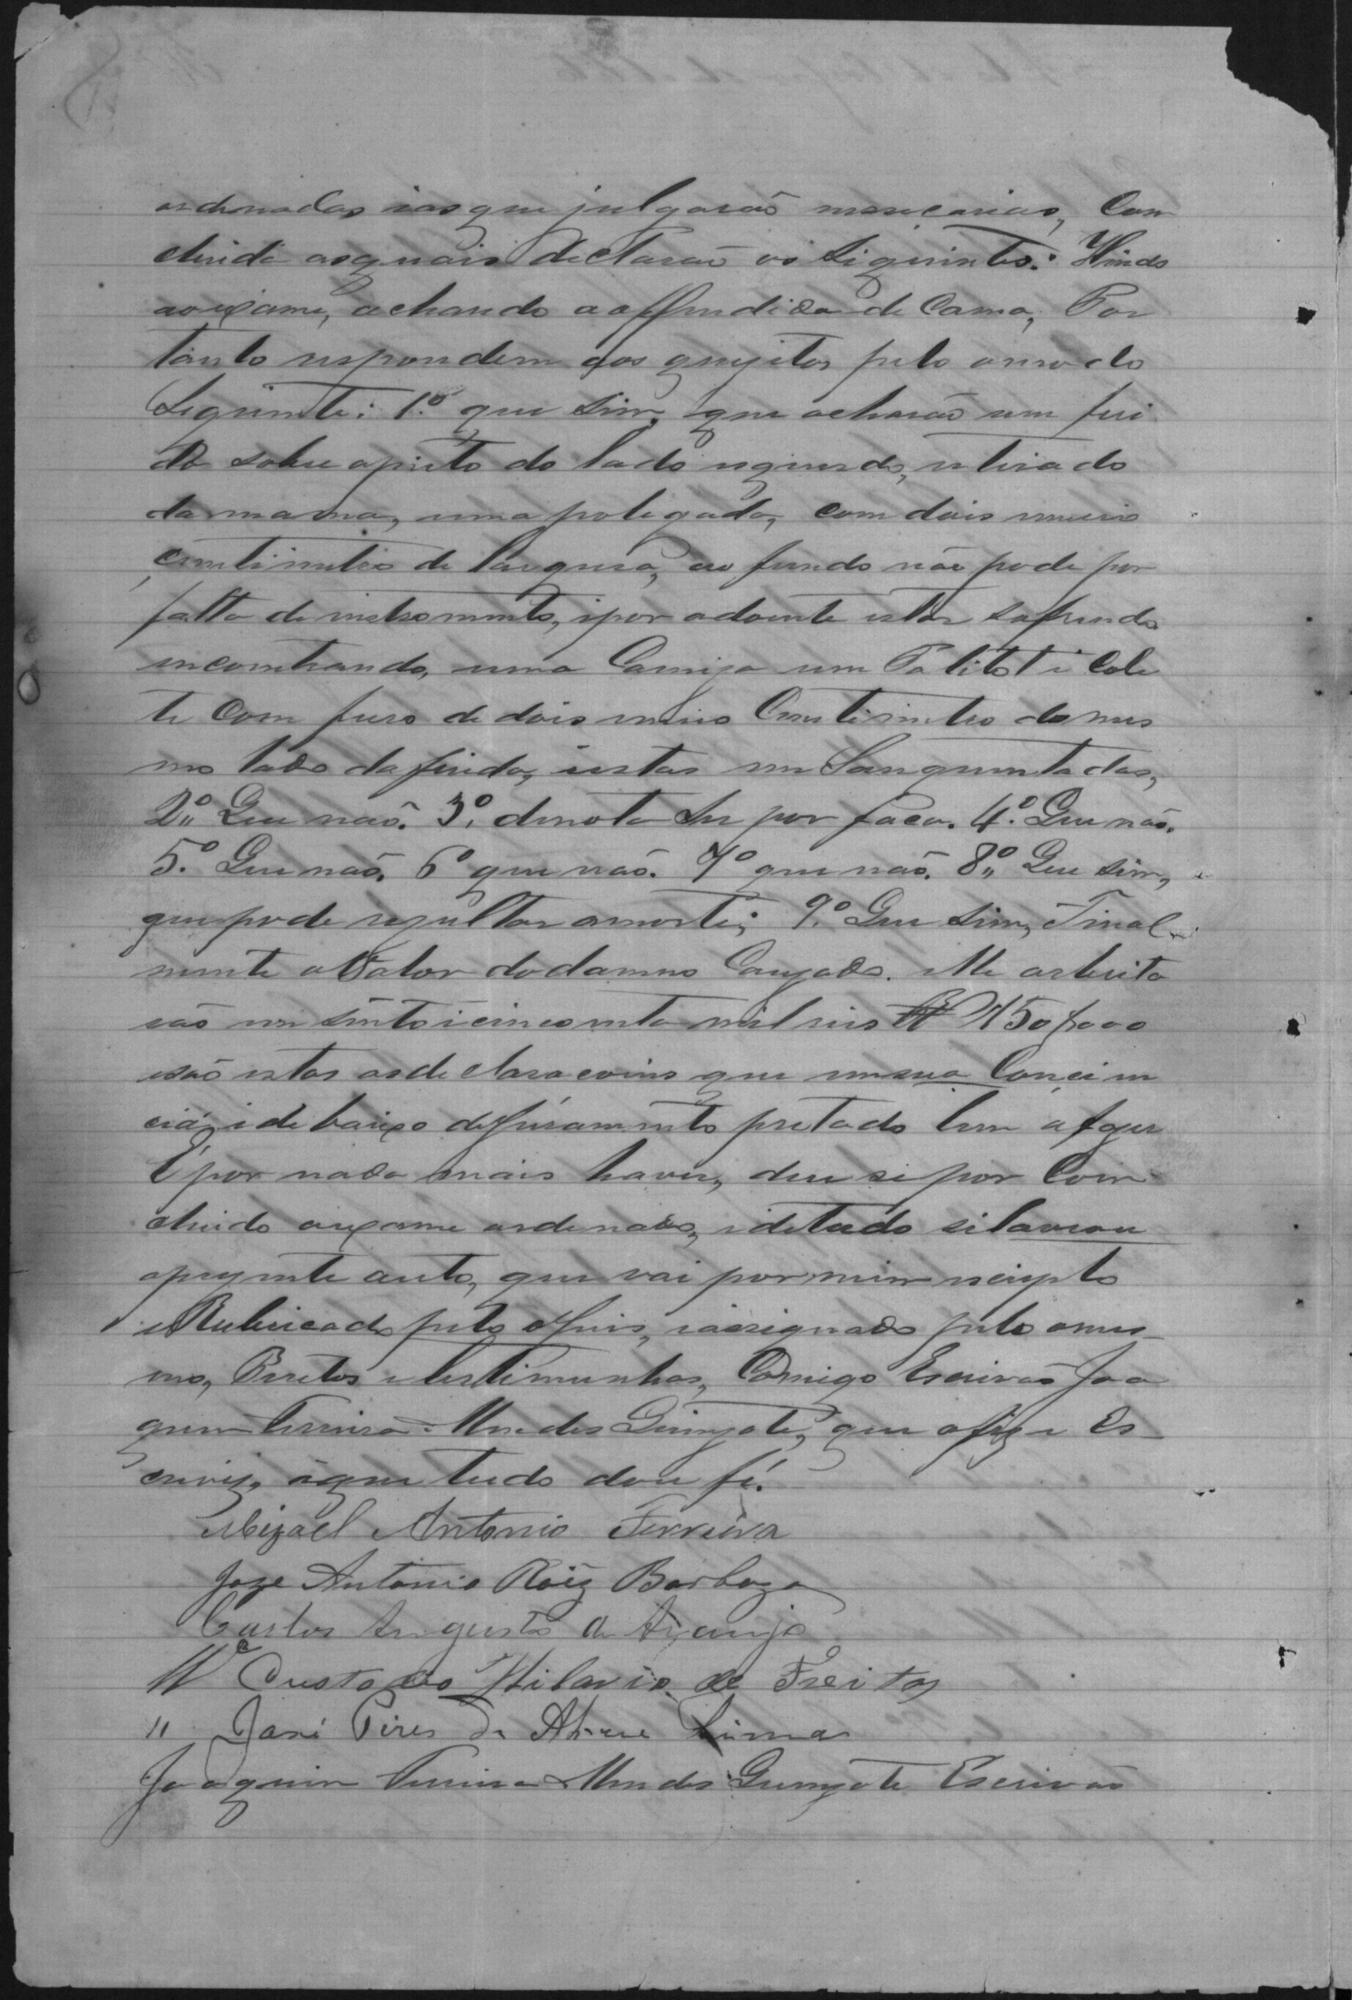 ordenadas, ias que julgarão nececarias, Com
cluida as quais declarão os siguintes: Hindo
ao exame, achando a offendida de Cama, Por
tanto respondem aos quezitos pelo omodo
siguinte: 1º. que sim, que acharão um feri
do sobre opeito do lado esquerdo, retirado
da mama, uma polegada, com dois meuio
centimitro de largura, ao fundo não pode por
falta de instromento, ipor adoente estar sofrendo
encomtrando, uma Camiza um Palitot i Cole
te Com furo de dois meuio Centimitro do mes
mo lado daferida, iestas emSanguentadas,
2º. Que não. 3º. denota Ser por faca. 4º. Que não.
5º. Que não. 6º que não. 7º que não. 8º. Que sim,
quepode rezultar amorte; 9º. Que sim, Final
mente oValor dodamno Cauzado. Me arbitra
rão em sento icincoenta mil reis 150$000
esão estas asdeclaracoins que emsua Concien
cia, idebaixo dejuramento prestado tem afazer
E por nada mais haver, deu si por Com
cluido oexame ordenado, idetudo silavrou
oprezente auto, que vai por mim escripto
eRubricado pelo Juis, iassignado pelo mes
mo, Peretos etestimunhas, Comigo Escrivão Joa
quim Ferreira Mendes Guimzote, que ofiz e Es
crivez, doque tudo dou fé.
Mizael Antonio Ferreira
Joze Antonio Roiz Barboza
Carlos Augusto de Araujo
Mel Custodio Hilario de Freitas
" José Pires de Abreu Lima
Joaquim Ferreira Mendes Guimzote Escrivão